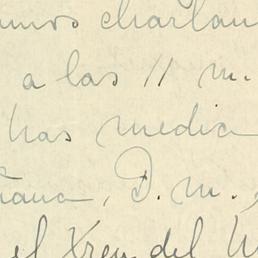 amos charlan
a las 11 m.
has media
ñana, D. m.,
el Tren del